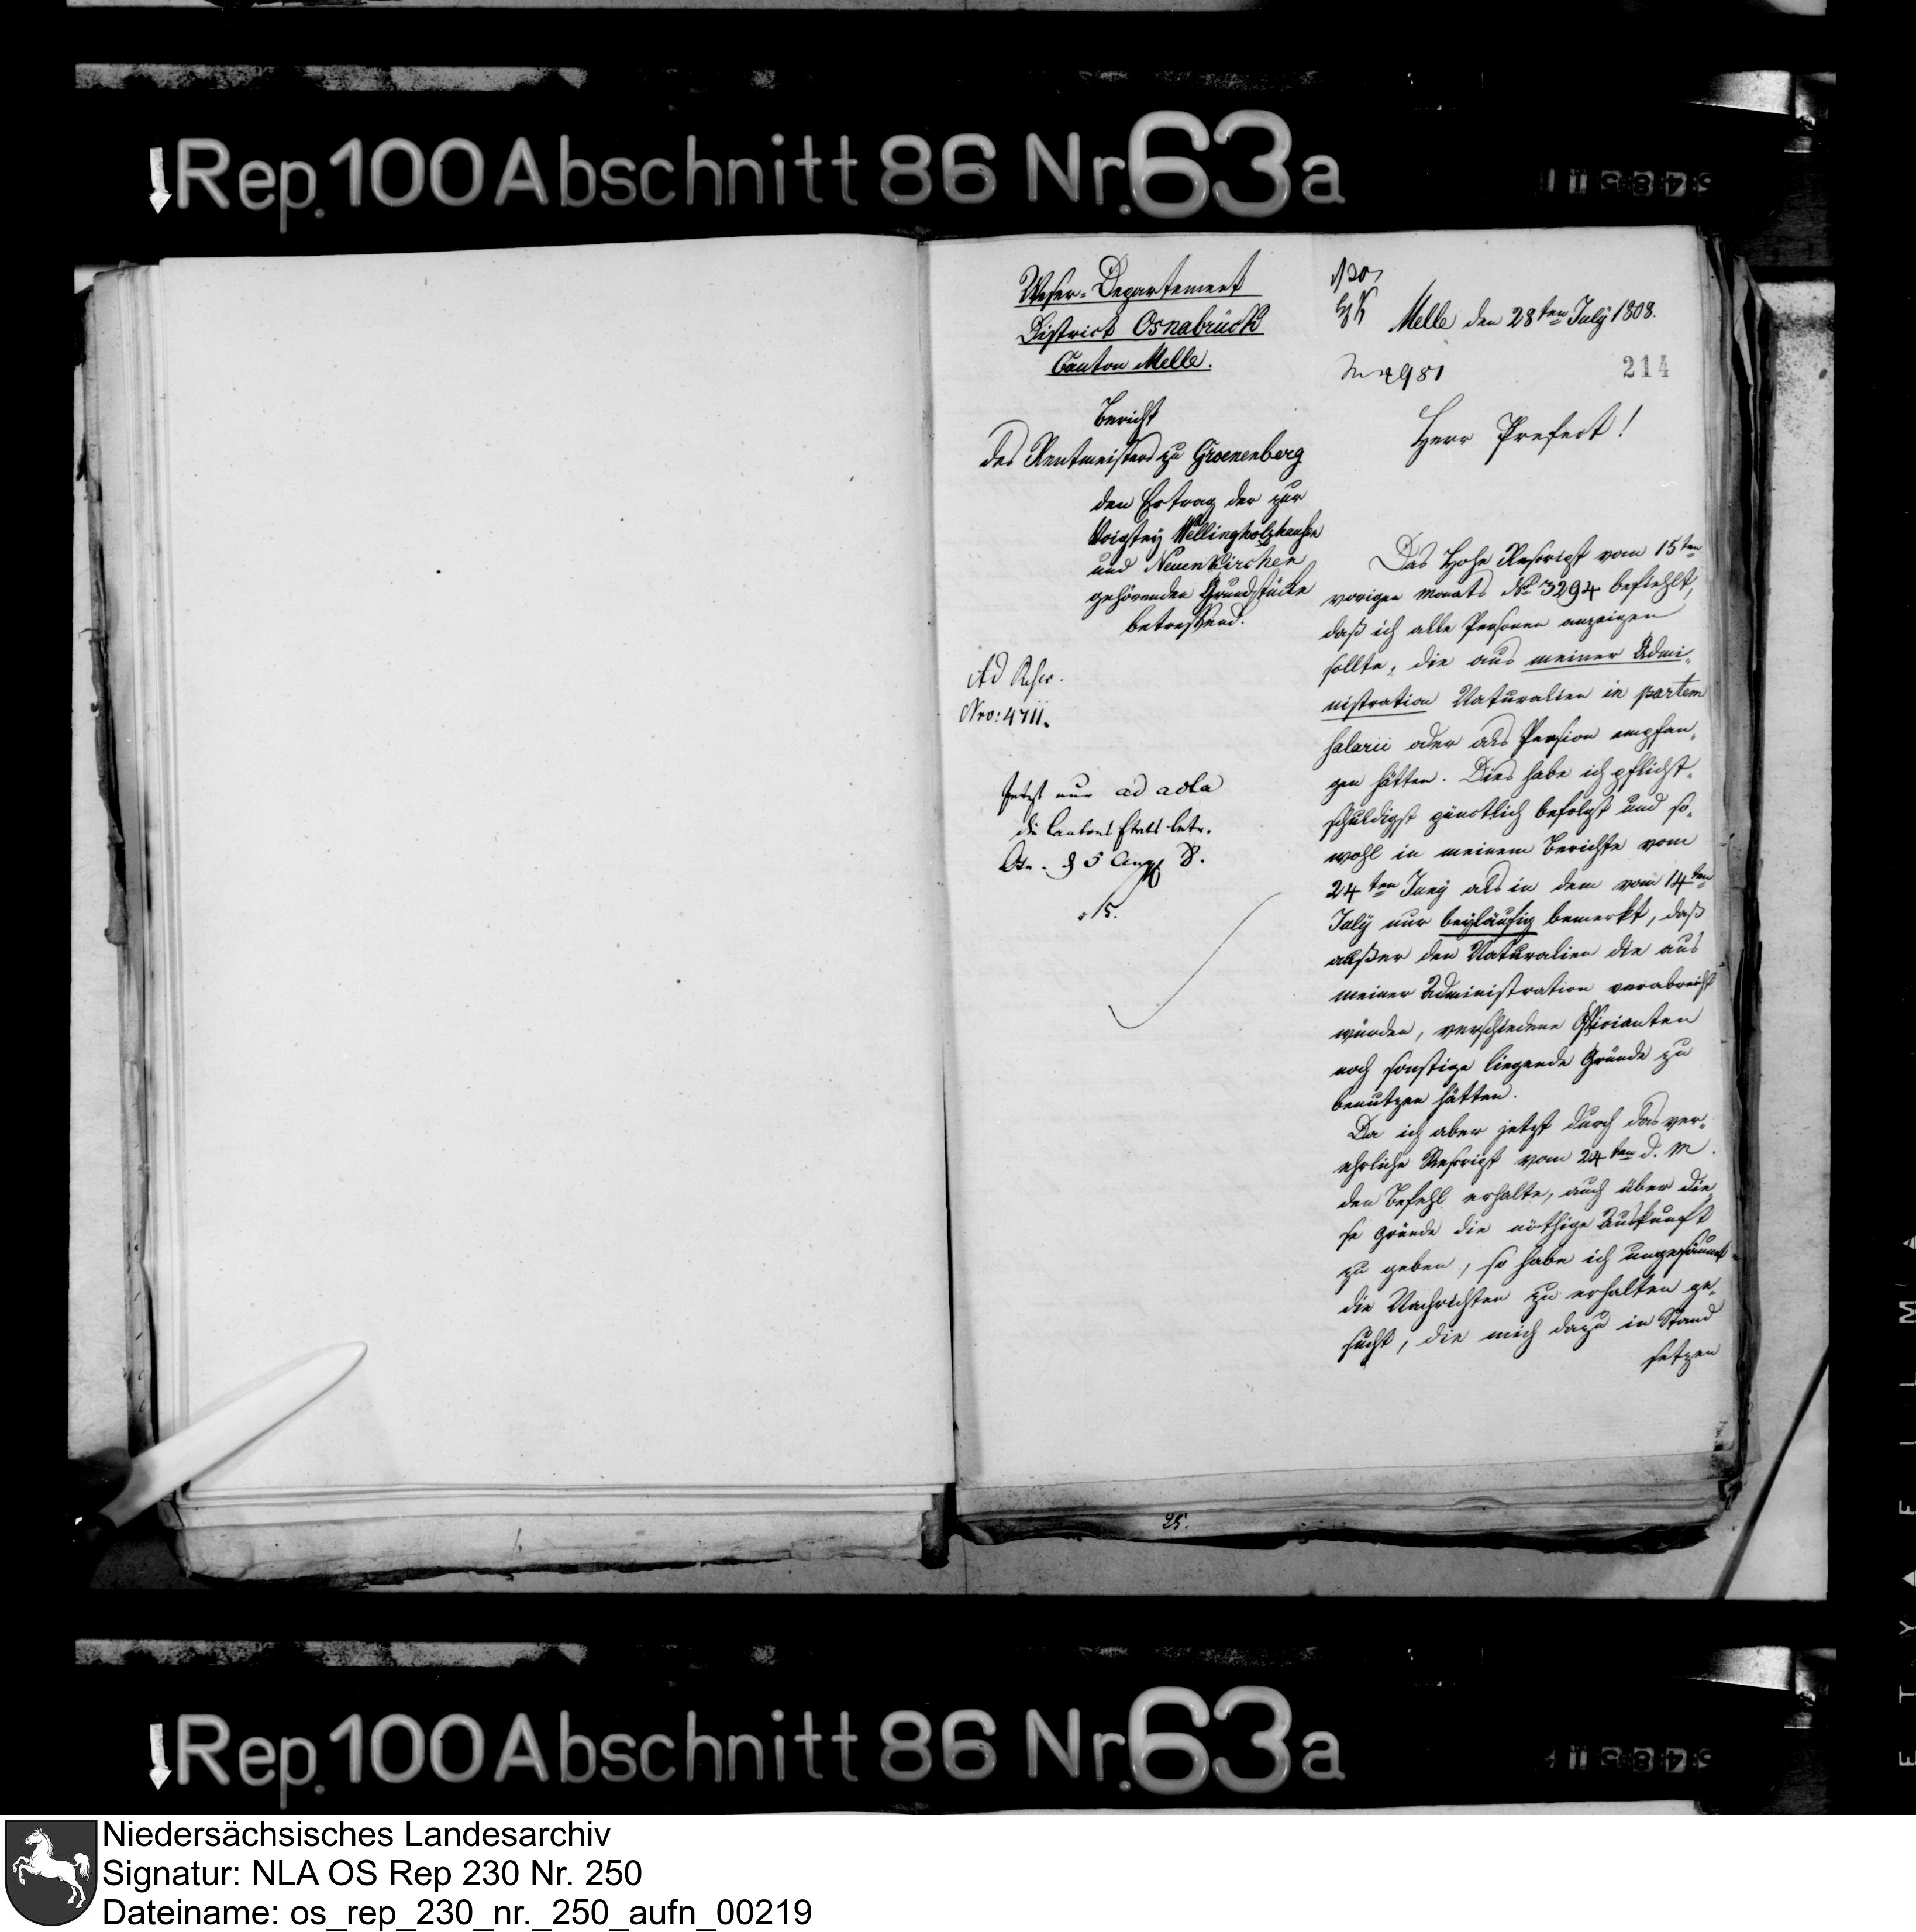 Rep. 100 Abschnitt 86 Nr. 63a
Weser-Departement
District Osnabrück
Canton Melle.
Bericht
des Rentmeisters zu Groenenberg
den Ertrag der zur
Voigtey Wellingholzhausen
und Neuenkirchen
gehörenden Grundstücke
betreffend.
Ad Rescr.
Nro: 4711.
Jetzt nur ad acta
die Cantons Etats betr.
Osn. d 5 Aug 8.
Melle den 28ten July 1808.
214
Herr Prefect!
Das Hohe Rescript vom 15ten
vorigen Monats No 3294 befiehlt,
daß ich alle Personen anzeigen
sollte, die aus meiner Admi-
nistration Naturalien in partem
salarii oder als Pension empfan-
gen hätten. Dies habe ich pflicht-
schuldigst pünctlich befolgt und so-
wohl in meinem Berichte vom
24ten Juny als in dem vom 14ten
July nur beyläufig bemerkt, daß
außer den Naturalien die aus
meiner Administration verabreicht
würden, verschiedene Officianten
noch sonstige liegende Gründe zu
benutzen hätten.
Da ich aber jetzt durch das ver-
ehrliche Rescript vom 24ten d. M.
den Befehl erhalte, auch über die-
se Gründe die nöthige Auskunft
zu geben, so habe ich ungesäumt
die Nachrichten zu erhalten ge-
sucht, die mich dazu in Stand
setzen
25.
Rep. 100 Abschnitt 86 Nr. 63a
Niedersächsisches Landesarchiv
Signatur: NLA OS Rep 230 Nr. 250
Dateiname: os_rep_230_nr._250_aufn_00219